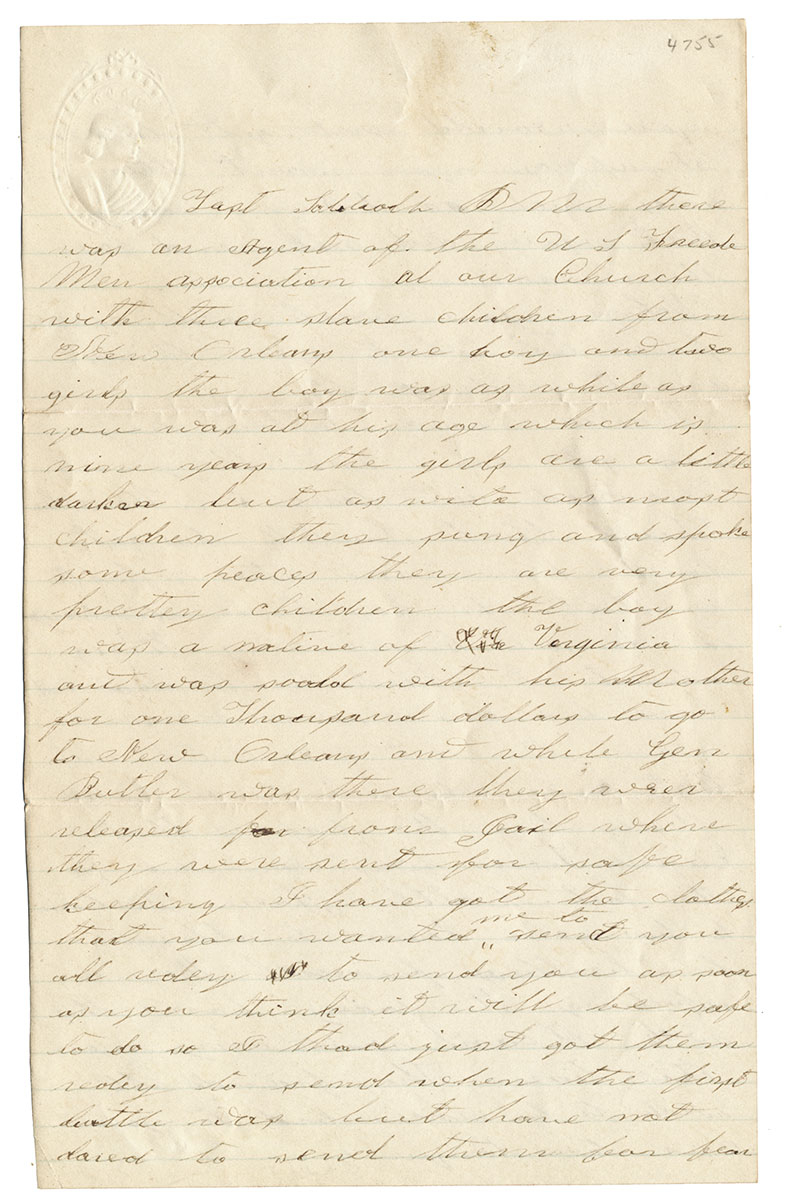 4755
Last Sabboth P M there
was an Agent of the U S Freede
Men association at our Church
with three slave children from
New Orleans one boy and two
girls the boy was as white as
you was at his age which is
nine years the girls are a little
darker but as wite as most
children they sung and spoke
some peaces they are very
pretty children the boy
was a native of Virginia
and was soald with his Mother
for one Thousand dollars to go
to New Orleans and while Gen
Butler was there they wer
released from Jail where
they were sent for safe
keeping I have got the clothes
me to
that you wanted send you
all redey to send you as soon
as you think it will be safe
to do so I had just got them
redey to send when the first
battle was but have not
dared to send them for fear